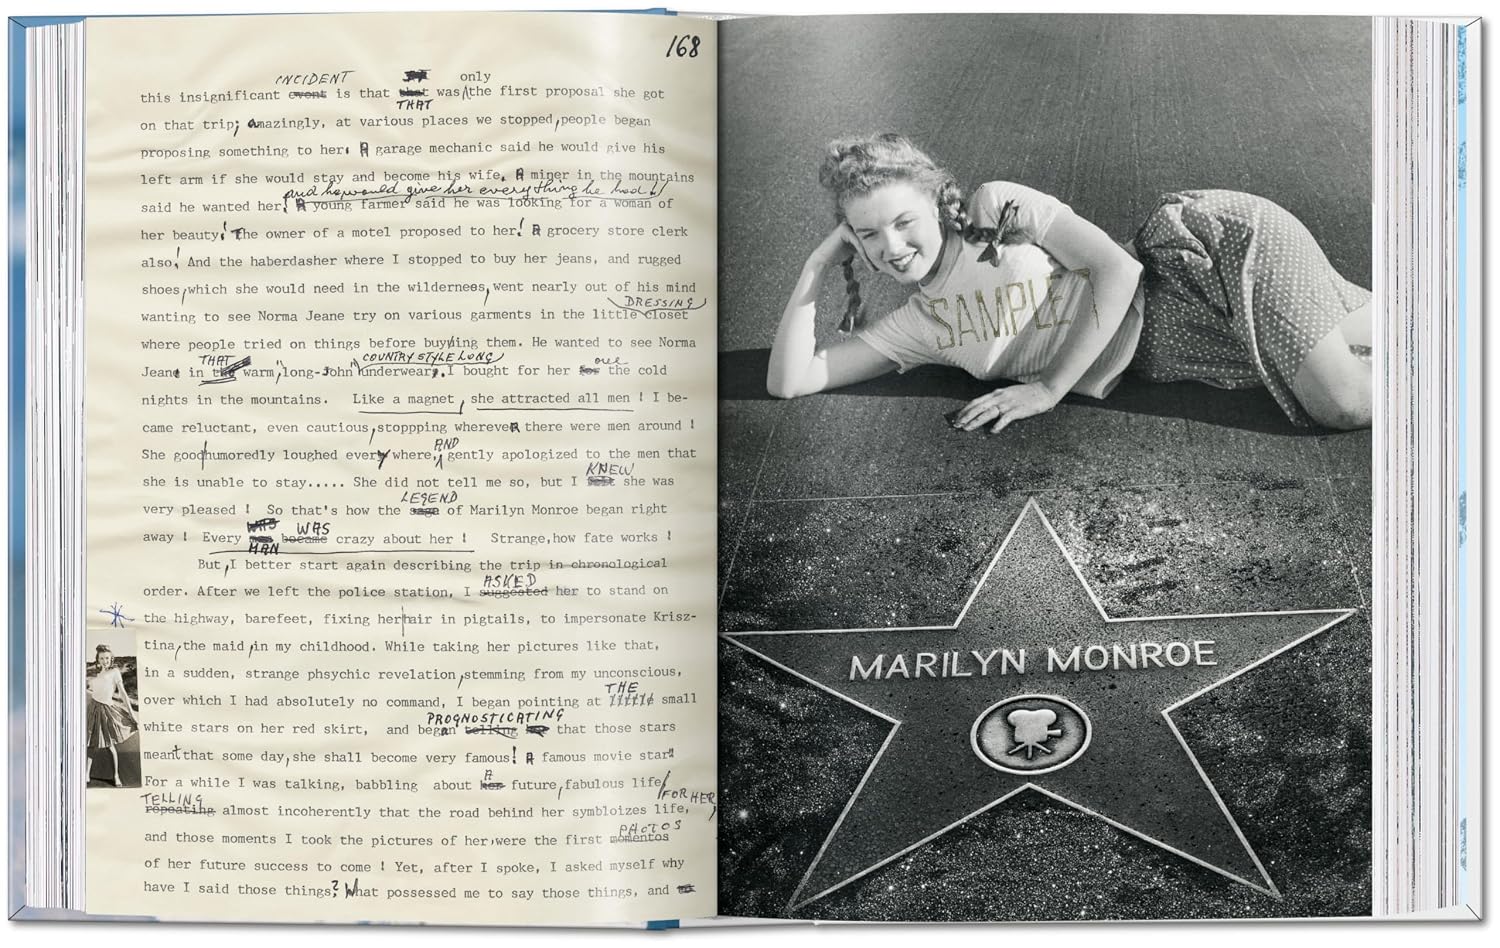 168
INCIDENT only
this insignificant event is that that was the first proposal she got
THAT
on that trip; amazingly, at various places we stopped, people began
proposing something to her. A garage mechanic said he would give his
left arm if she would stay and become his wife. A miner in the mountains
and he would give her everything he had!
said he wanted her! A young farmer said he was looking for a woman of
her beauty! The owner of a motel proposed to her! A grocery store clerk
also! And the haberdasher where I stopped to buy her jeans, and rugged
shoes, which she would need in the wilderness, went nearly out of his mind
DRESSING
wanting to see Norma Jeane try on various garments in the little closet
where people tried on things before buying them. He wanted to see Norma
THAT COUNTRY STYLE LONG one
Jeane in the warm, "long-John" underwear, I bought for her for the cold
nights in the mountains. Like a magnet, she attracted all men ! I be-
came reluctant, even cautious, stoppping whereveR there were men around !
AND
She good humoredly loughed every where, gently apologized to the men that
KNEW
she is unable to stay..... She did not tell me so, but I felt she was
LEGEND
very pleased ! So that's how the saga of Marilyn Monroe began right
WAS WAS
away ! Every became crazy about her ! Strange, how fate works !
MAN
But, I better start again describing the trip in chronological
ASKED
order. After we left the police station, I suggested her to stand on
the highway, barefeet, fixing her hair in pigtails, to impersonate Krisz-
tina, the maid, in my childhood. While taking her pictures like that,
in a sudden, strange phsychic revelation, stemming from my unconscious,
THE
over which I had absolutely no command, I began pointing at little small
PROGNOSTICATING
white stars on her red skirt, and began telling her that those stars
meant that some day, she shall become very famous! A famous movie star"
A
For a while I was talking, babbling about her future, fabulous life
TELLING FOR HER,
repeating almost incoherently that the road behind her symbloizes life,
PHOTOS
and those moments I took the pictures of her, were the first momentos
of her future success to come ! Yet, after I spoke, I asked myself why
have I said those things? What possessed me to say those things, and to
SAMPLE 7
MARILYN MONROE